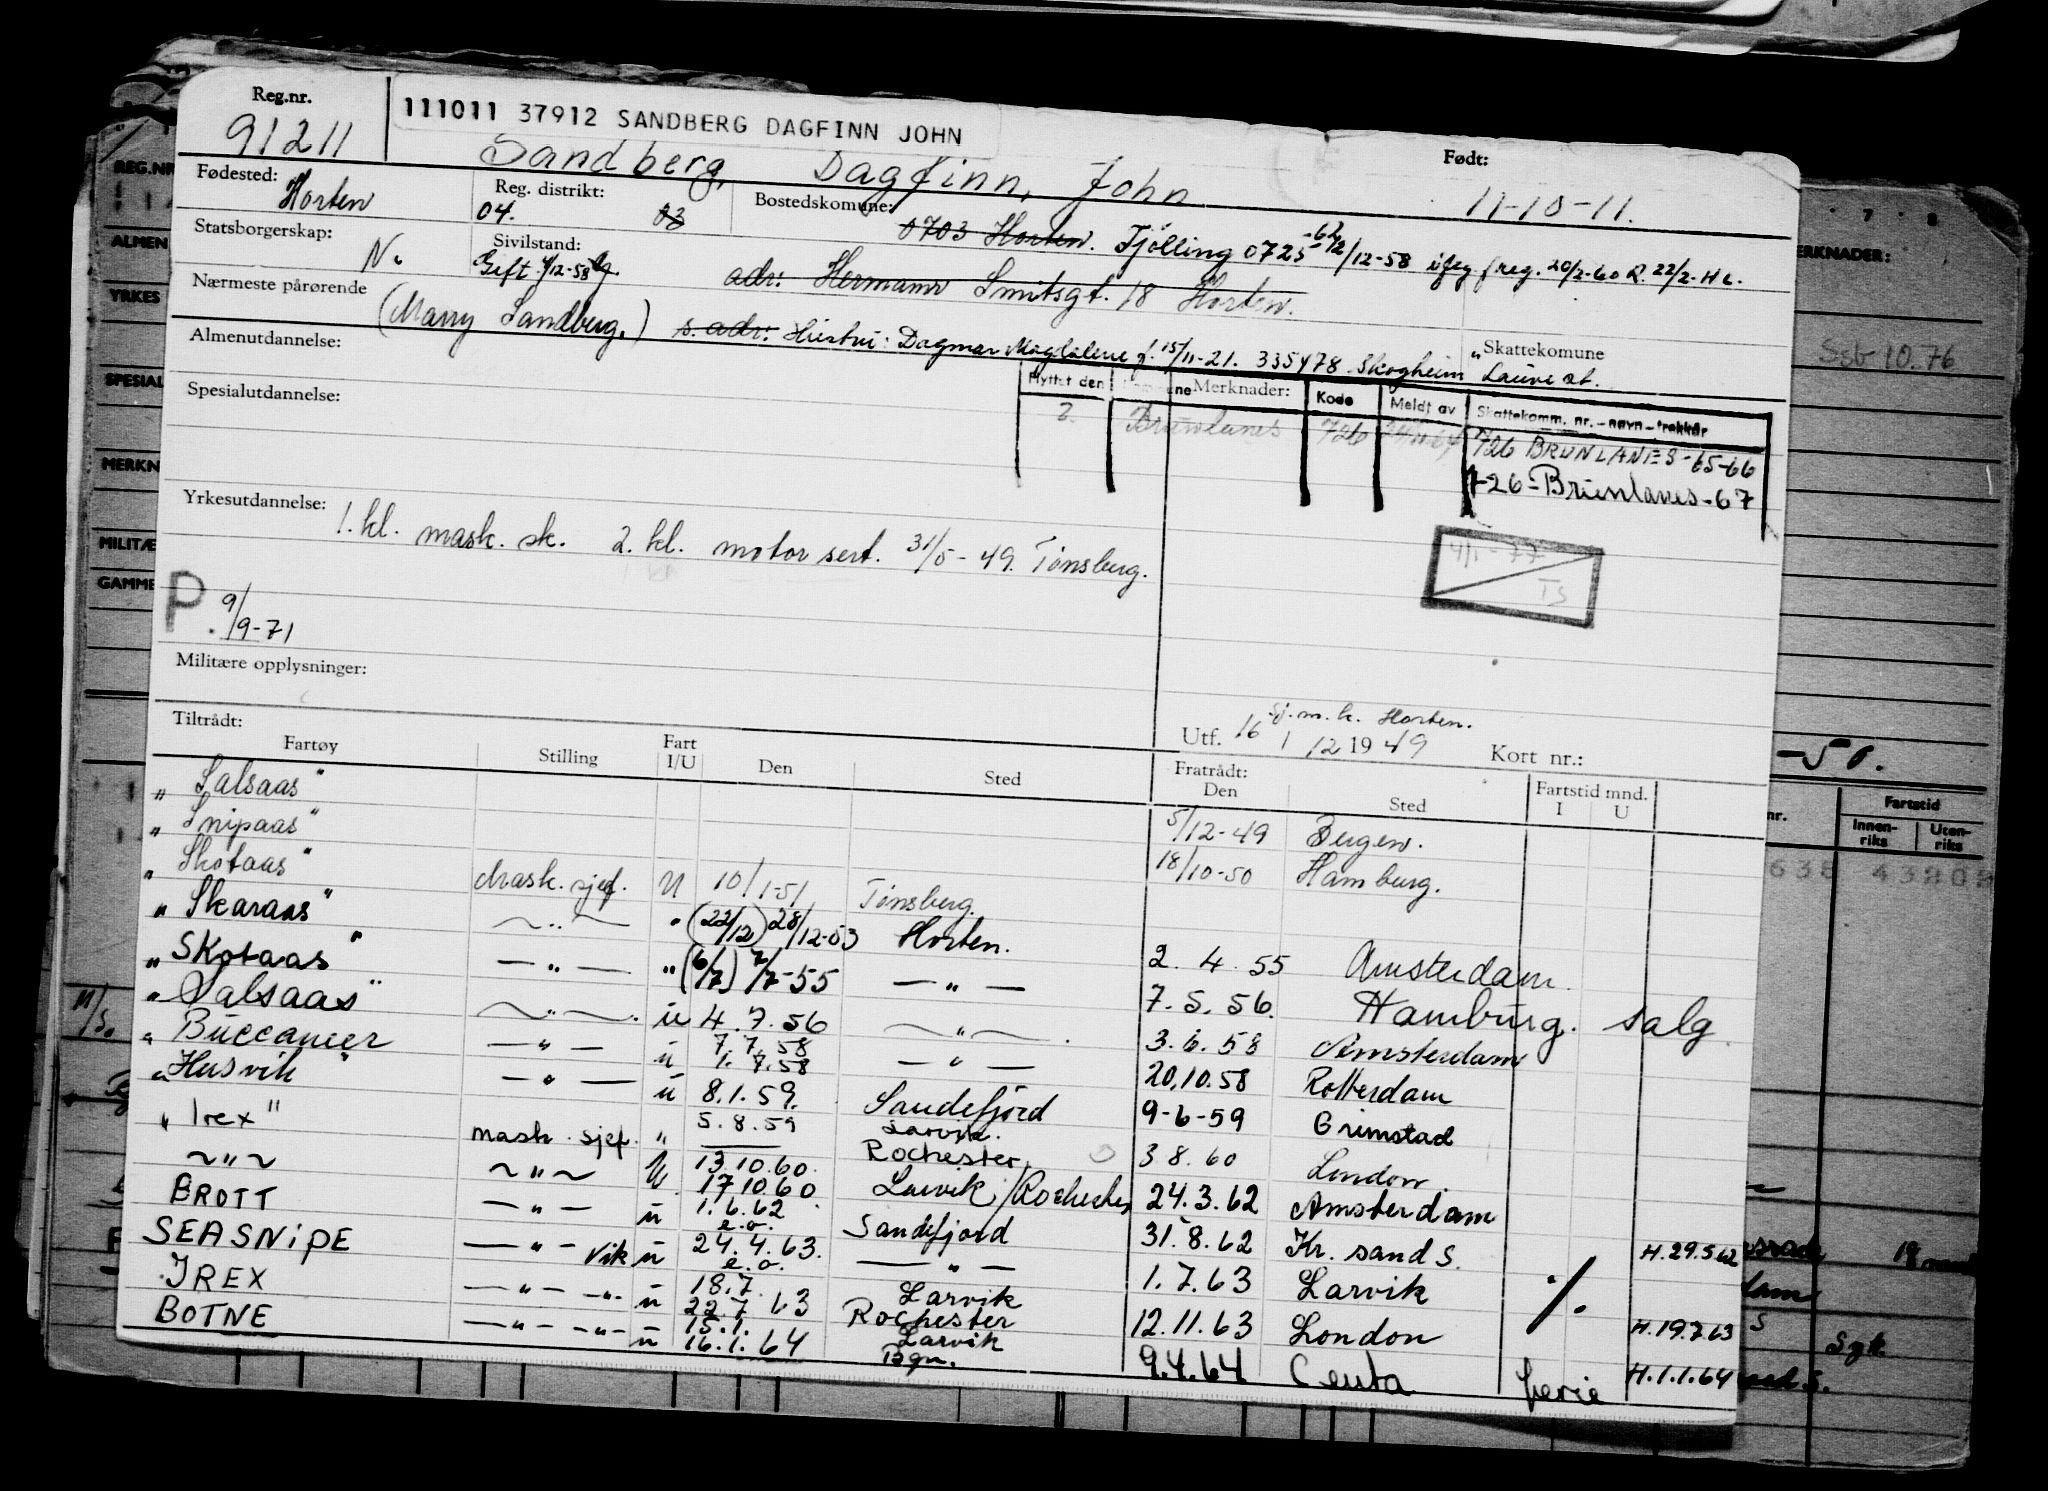 Reg.nr.
91211
111011 37912 SANDBERG DAGFINN JOHN
Sandberg, Dagfinn, John
Født:
11-10-11.
Fødested:
Horten
Reg. distrikt:
04. 03
Bostedskomune:
0703 Horten. Tjölling 0725 12/12-58
freg. 20/2-60 22/2-
Statsborgerskap:
N.
Sivilstand:
Gift 4/12-58
adr: Hermann Smitsgt. 18 Horten.
Nærmeste pårørende
(Marry Sandberg.)
s. adr: Hustru: Dagmar Magdalene f. 15/11-21. 335478 Skogheim Lauve st.
Skattekomune
Almenutdannelse:
Spesialutdannelse:
Flyttet den
Merknader:
Kode
Meldt av
Skattekomm. nr. - navn - trekkår
Brunlanes 726
726 BRUNLANES-65-66
726-Brunlanes-67
Yrkesutdannelse:
1. kl. mask. sk. 2. kl. motor sert. 31/5-49. Tønsberg.
4/1-77
TS
P. 9/9-71
Militære opplysninger:
Sj.m.k. Horten.
Utf. 16/12 1949 Kort nr.:
Tiltrådt:
Fartøy Stilling Fart I/U Den Sted
Fratrådt:
Den Sted
Fartstid mnd.
I U
"Salsaas" 5/12-49 Bergen.
"Snipaas" 18/10-50 Hamburg.
"Skotaas" Mask. sjef. U 10/1-51 Tønsberg.
"Skaraas" —"— " (22/12) 28/12-53 Horten. 2. 4. 55 Amsterdam.
"Skotaas" —"— " (6/7) 7/7-55 —"— 7. 5. 56. Hamburg. salg
"Salsaas" —"—. u 4. 7. 56 —"—. 3. 6. 58 Amsterdam
"Buccaneer —"— u 7. 7. 58 1. 7. 58 —"— 20.10.58 Rotterdam
"Husvik" —"— u 8.1.59. Sandefjord 9-6-59 Grimstad
"Irex" mask. sjef. " 5.8.59 Larvik. 3 8. 60 London.
—"— —"— U 13.10.60. 17.10.60 Rochester, Larvik/Rochester 24.3.62 Amsterdam
BROTT —"— u 1.6.62 e.o. Sandefjord 31.8.62 Kr. sand S. H.29.5.62
SEASNIPE —"— vik u 24.4.63. e.o. —"— 1.7.63 Larvik ./.
IREX —"— -"- u 18.7. 22.7 63 Larvik Rochester 12.11.63 London H.19.7.63
BOTNE —"— -"- u 15.1. 16.1.64 Larvik Bgn. 9.4.64 Ceuta ferie H.1.1.64
REG.NR
ALMEN
YRKES
SPESIAL
MERKN
MILITÆ
GAMME
7 8
ERKNADER:
10.76
-50.
nr.
Fartstid
Innenriks
Utenriks